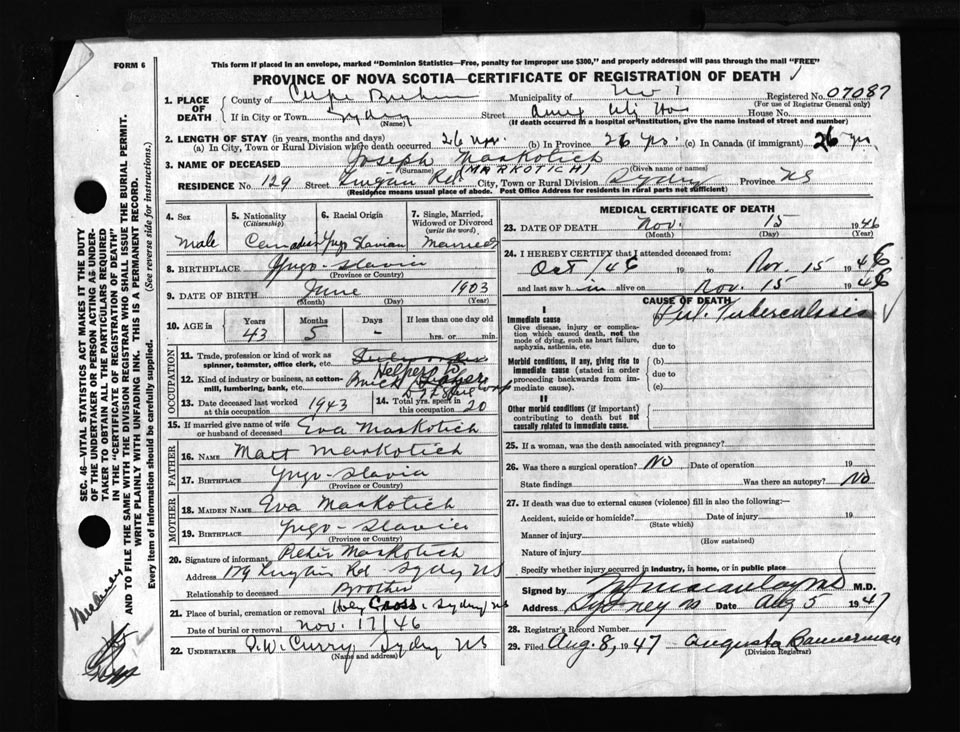 FORM 6
This form if placed in an envelope, marked "Dominion Statistics—Free, penalty for improper use $300," and properly addressed will pass through the mail "FREE"
PROVINCE OF NOVA SCOTIA—CERTIFICATE OF REGISTRATION OF DEATH
1. PLACE OF DEATH
County of Cape Breton Municipality of No 1 Registered No. 07087
(For use of Registrar General only)
If in City or Town Sydney Street House No.
(Name) (If death occurred in a hospital or institution, give the name instead of street and number)
2. LENGTH OF STAY (in years, months and days)
(a) In City, Town or Rural Division where death occurred 26 yrs. (b) In Province 26 yrs. (c) In Canada (if immigrant) 26 yrs
3. NAME OF DECEASED Joseph Markotich
(Surname) (MARKOTICH) (Given name or names)
RESIDENCE No. 129 Street Lingan Rd City, Town or Rural Division Sydney Province NS
(Residence means usual place of abode. Post Office Address for residents in rural parts not sufficient)
4. Sex Male
5. Nationality (Citizenship) Canadian
6. Racial Origin Yugo Slavian
7. Single, Married, Widowed or Divorced (write the word) Married
8. BIRTHPLACE Yugo-Slavia
(Province or Country)
9. DATE OF BIRTH June 1903
(Month) (Day) (Year)
10. AGE in Years 43 Months 5 Days - If less than one day old hrs. or min.
OCCUPATION
11. Trade, profession or kind of work as spinner, teamster, office clerk, etc. Helper to
12. Kind of industry or business, as cotton-mill, lumbering, bank, etc. Brick
13. Date deceased last worked at this occupation 1943
14. Total yrs. spent in this occupation 20
15. If married give name of wife or husband of deceased Eva Markotich
FATHER
16. NAME Matt Markotich
17. BIRTHPLACE Yugo-Slavia
(Province or Country)
MOTHER
18. MAIDEN NAME Eva Markotich
19. BIRTHPLACE Yugo-Slavia
(Province or Country)
20. Signature of informant Peter Markotich
Address 129 Lingan Rd - Sydney NS
Relationship to deceased Brother
21. Place of burial, cremation or removal Holy Cross - Sydney NS
Date of burial or removal Nov. 17/46
22. UNDERTAKER Curry, Sydney NS
(Name and address)
MEDICAL CERTIFICATE OF DEATH
23. DATE OF DEATH Nov. 15 1946
(Month) (Day) (Year)
24. I HEREBY CERTIFY that I attended deceased from:
Oct/46 19 to Nov. 15 1946
and last saw him alive on Nov. 15 1946
CAUSE OF DEATH
I
Immediate cause Pul. Tuberculosis
Give disease, injury or complication which caused death, not the mode of dying, such as heart failure, asphyxia, asthenia, etc.
due to
Morbid conditions, if any, giving rise to immediate cause (stated in order proceeding backwards from immediate cause).
(b)
due to
(c)
II
Other morbid conditions (if important) contributing to death but not causally related to immediate cause.
25. If a woman, was the death associated with pregnancy?
26. Was there a surgical operation? NO Date of operation 19
State findings Was there an autopsy? NO
27. If death was due to external causes (violence) fill in also the following:-
Accident, suicide or homicide? Date of injury 19
(State which)
Manner of injury
(How sustained)
Nature of injury
Specify whether injury occurred in industry, in home, or in public place
Signed by M.D.
Address Sydney NS Date Aug 5 1947
28. Registrar's Record Number
29. Filed Aug. 8, 1947 Augusta Bannerman
(Division Registrar)
SEC. 46—VITAL STATISTICS ACT MAKES IT THE DUTY OF THE UNDERTAKER OR PERSON ACTING AS UNDERTAKER TO OBTAIN ALL THE PARTICULARS REQUIRED IN THE "CERTIFICATE OF REGISTRATION OF DEATH" AND TO FILE THE SAME WITH THE DIVISION REGISTRAR WHO SHALL ISSUE THE BURIAL PERMIT.
WRITE PLAINLY WITH UNFADING INK. THIS IS A PERMANENT RECORD.
Every item of information should be carefully supplied. (See reverse side for instructions.)